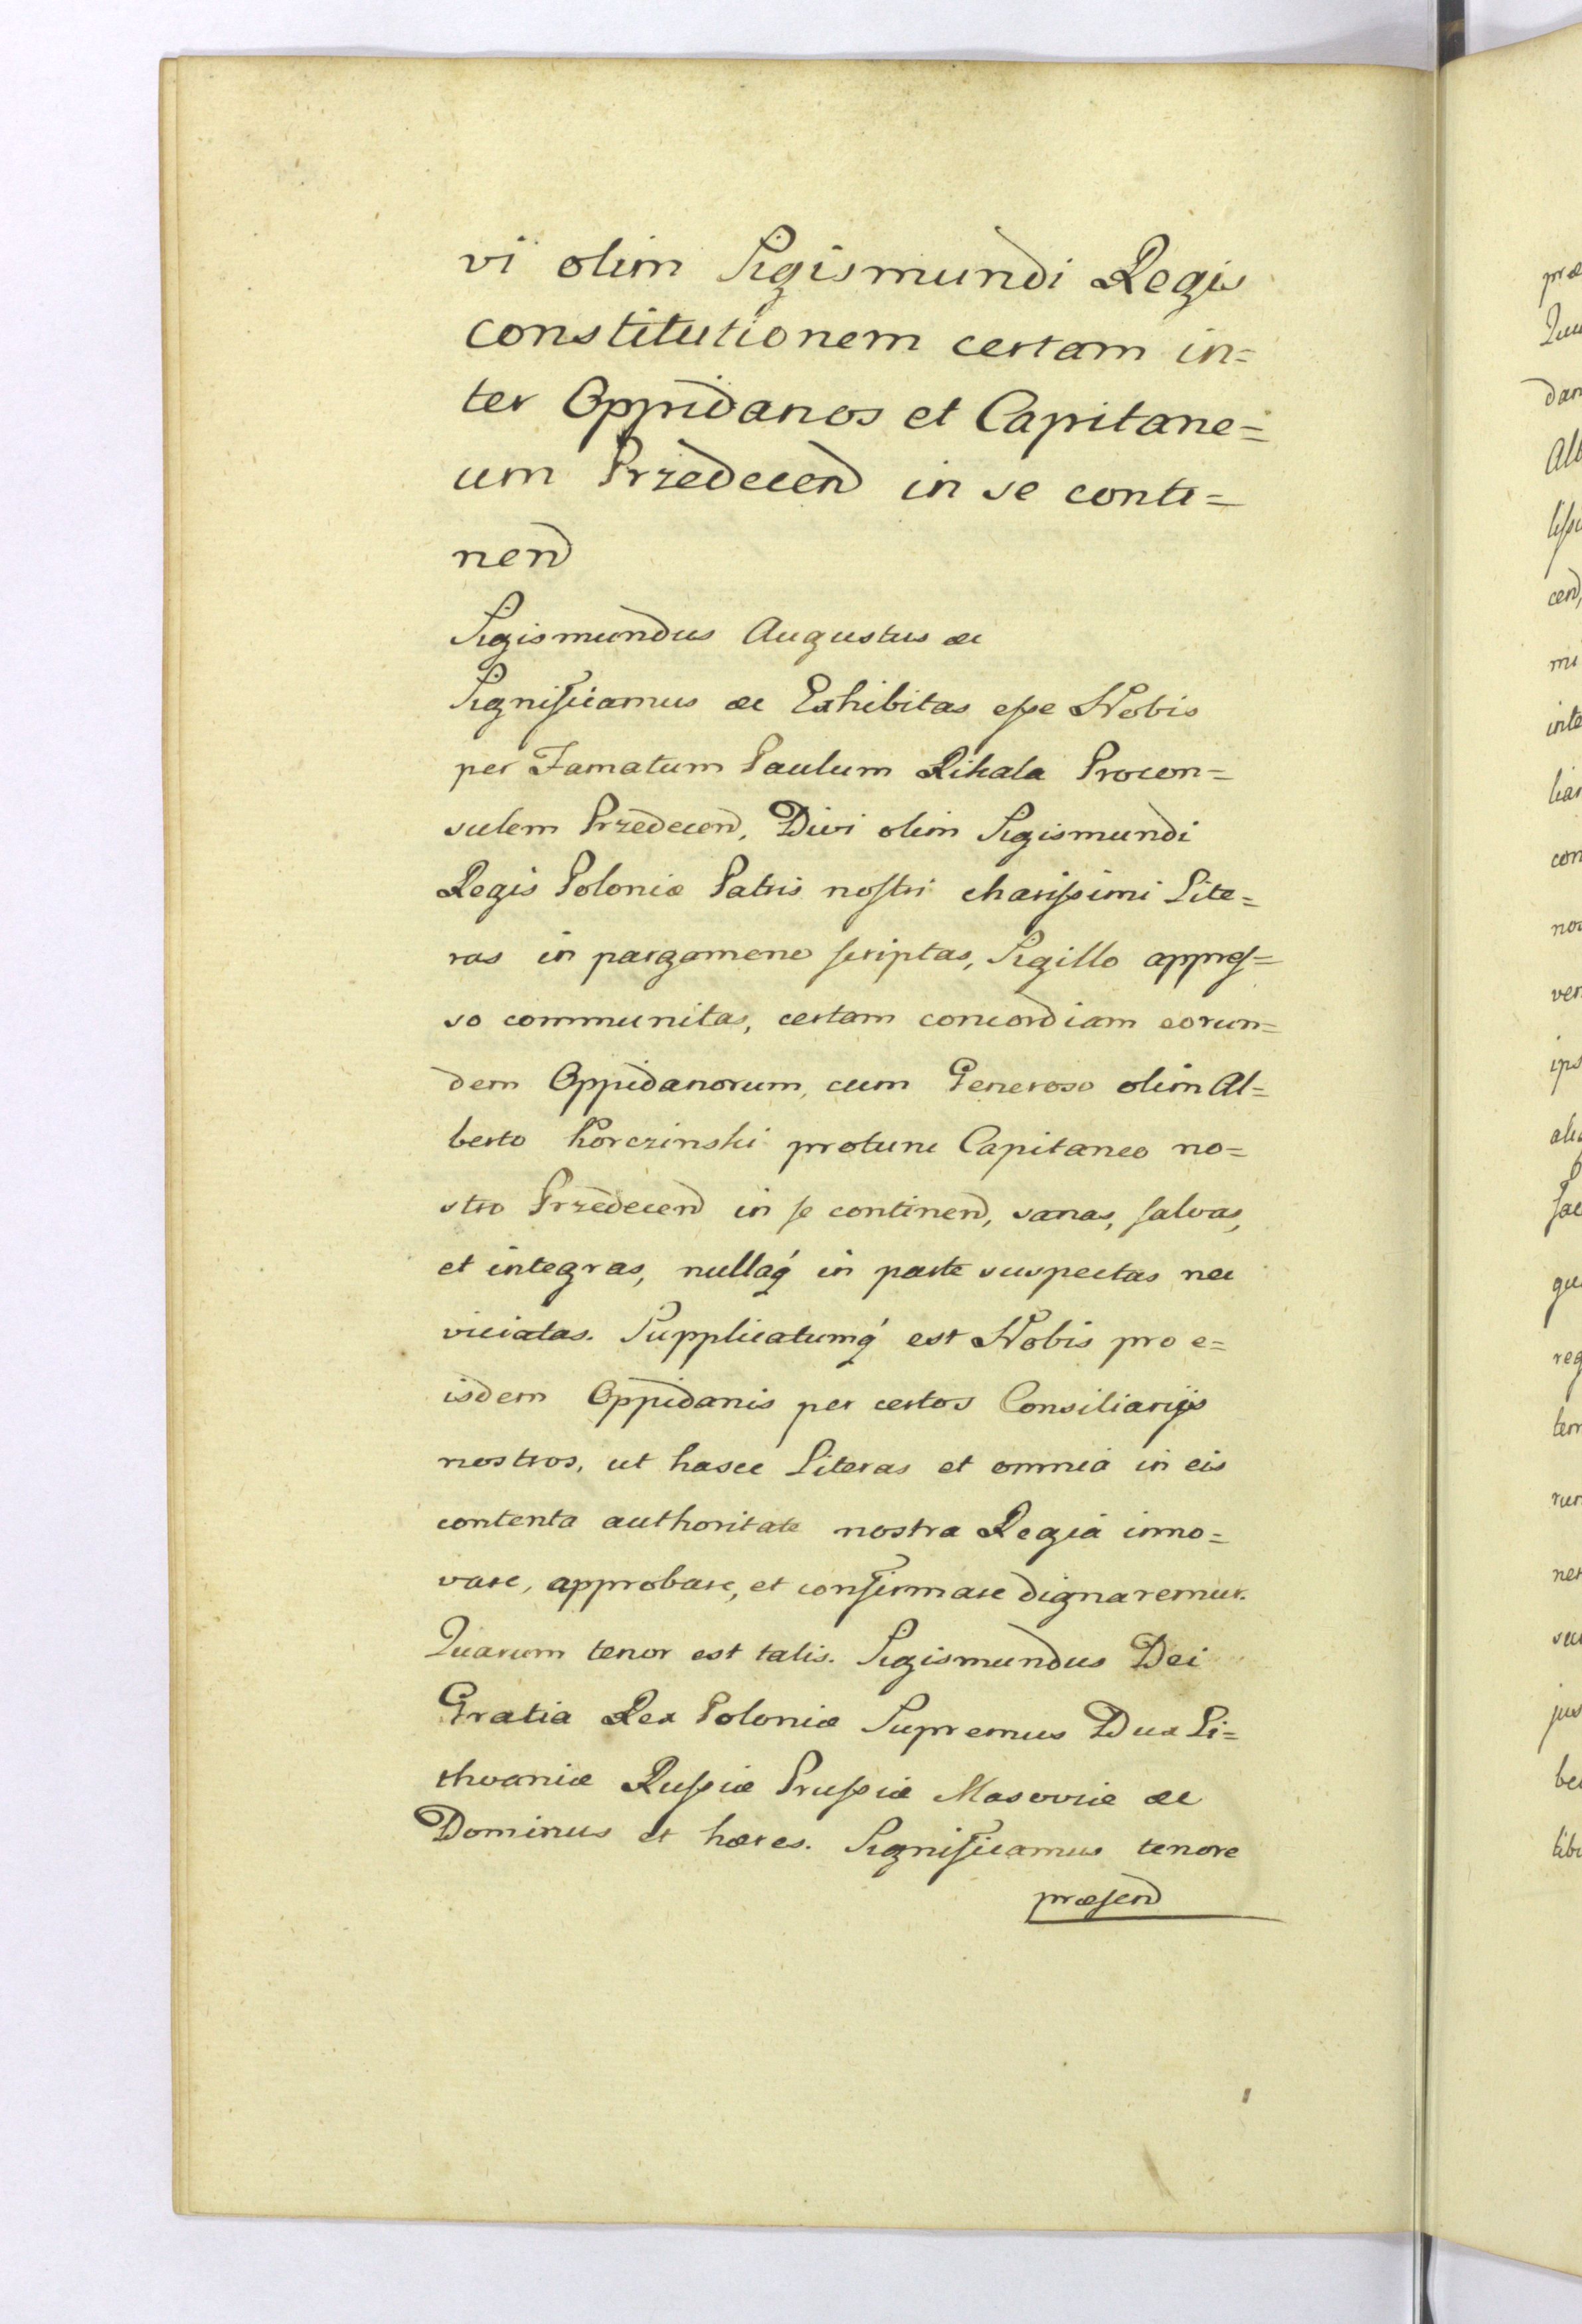 vi olim Sigismundi Regis
constitutionem certam in=
ter Oppidanos et Capitane=
um Przedecen̄ in se conti=
nen̄
Sigismundus Augustus &c
Significamus &c Exhibitas eſse Nobis
per Famatum Paulum Rikala Procon=
sulem Przedecen̄, Divi olim Sigismundi
Regis Poloniæ Patris noſtri chariſsimi Lite=
ras in pargameno ſcriptas, Sigillo appreſ=
so communitas, certam concordiam eorun=
dem Oppidanorum, cum Generoso olim Al=
berto Korczinski protunc Capitaneo no=
stro Przedecen̄ in ſe continen̄, sanas, ſalvas,
et integras, nullaq́ in parte suspectas nec
viciatas. Supplicatumq́ est Nobis pro e=
isdem Oppidanis per certos Consiliarijs
nostros, ut hasce Literas et omnia in eis
contenta authoritate nostra Regiâ inno=
vare, approbare, et confirmare dignaremur.
Quarum tenor est talis. Sigismundus Dei
Gratia Rex Poloniæ Supremus Dux Li=
thvaniæ Ruſsiæ Pruſsiæ Masoviæ &c
Dominus et hæres. Significamus tenore
præſen̄